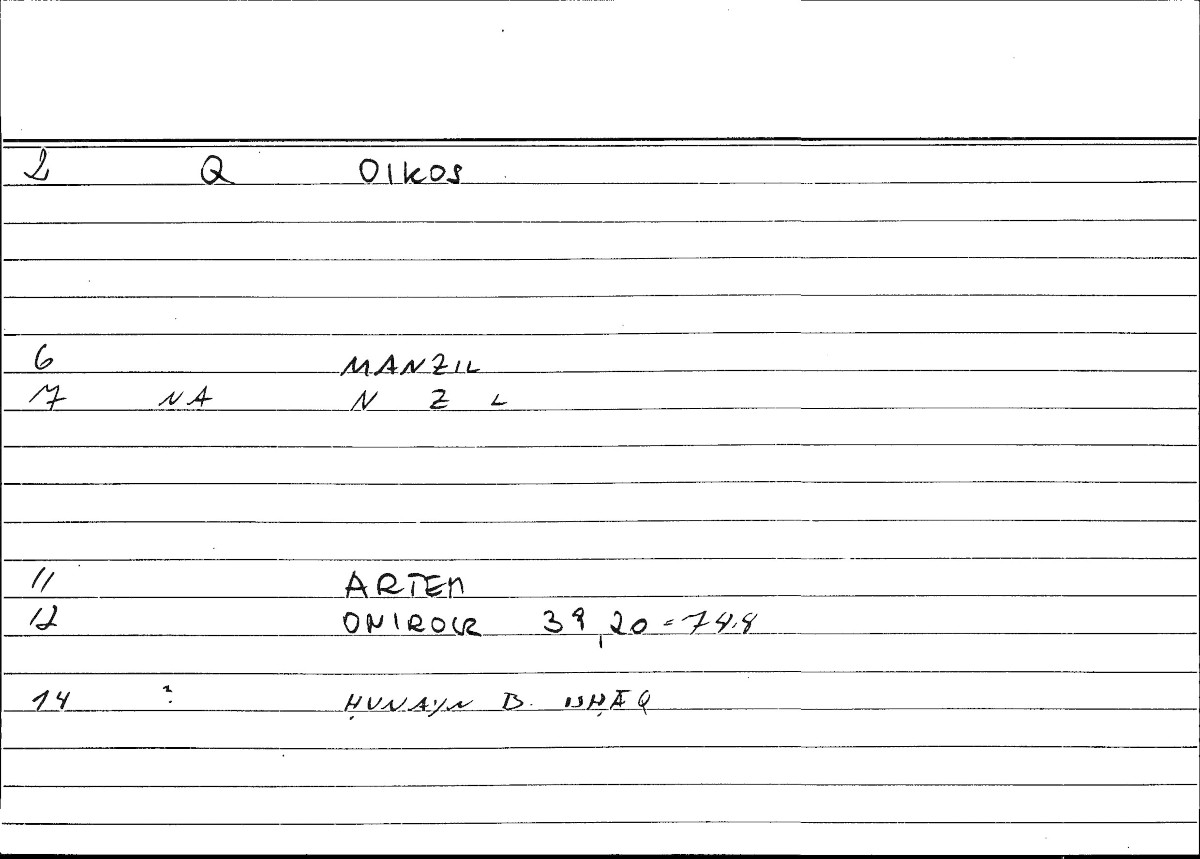 2 Q OIKOS
6 MANZIL
7 NA N Z L
11 ARTEM
12 ONIROCR 39,20 = 74.8
14 ? ḤUNAYN B. ISḤĀQ